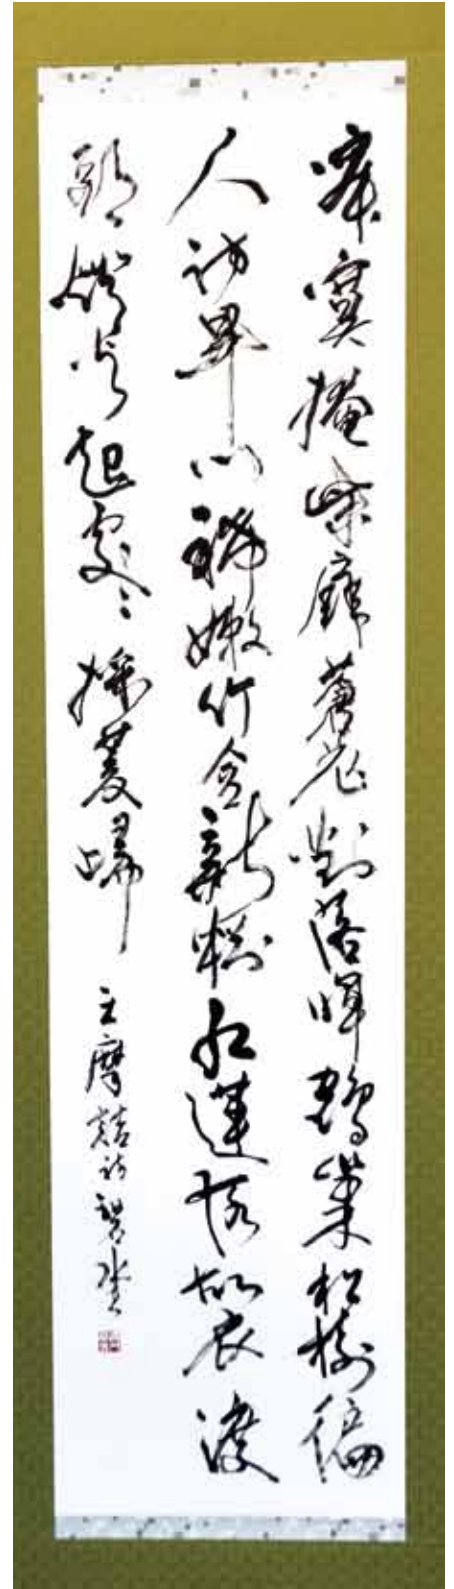 寂寞掩柴扉蒼茫對落暉鶴巢松樹徧
人訪畢門稀嫩竹含新粉紅蓮落故衣渡
頭燈火起處々採菱歸 王摩詰詩